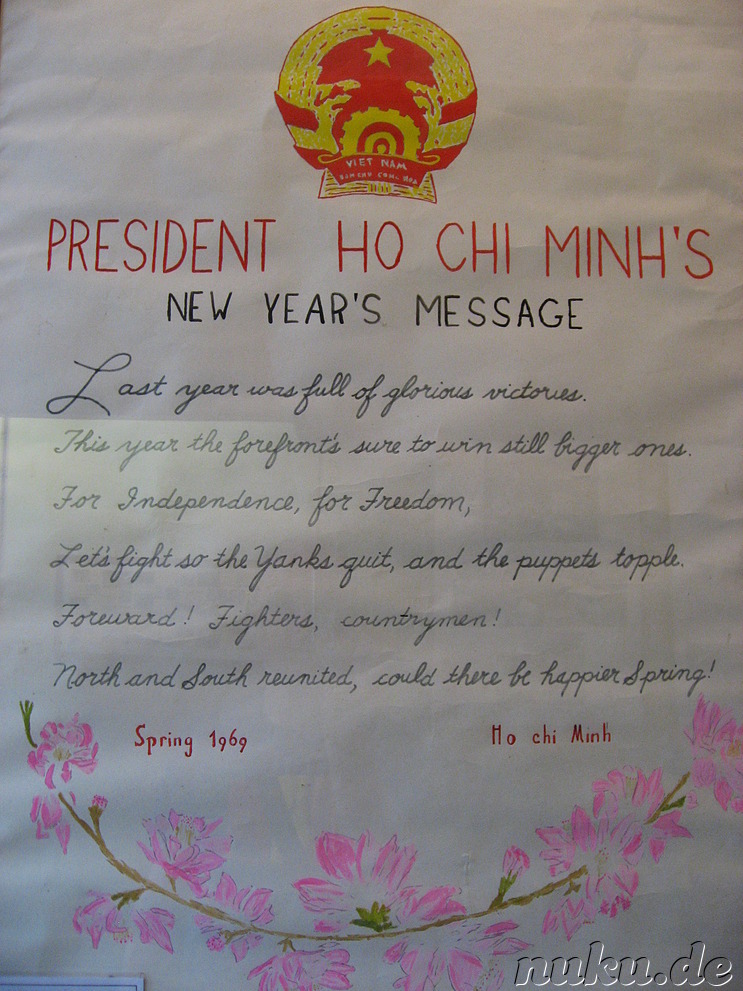 VIET NAM
DAN CHU CONG HOA
PRESIDENT HO CHI MINH'S
NEW YEAR'S MESSAGE
Last year was full of glorious victories.
This year the forefront's sure to win still bigger ones.
For Independence, for Freedom,
Let's fight so the Yanks quit, and the puppets topple.
Foreward! Fighters, countrymen!
North and South reunited, could there be happier Spring!
Spring 1969
Ho chi Minh
nuku.de